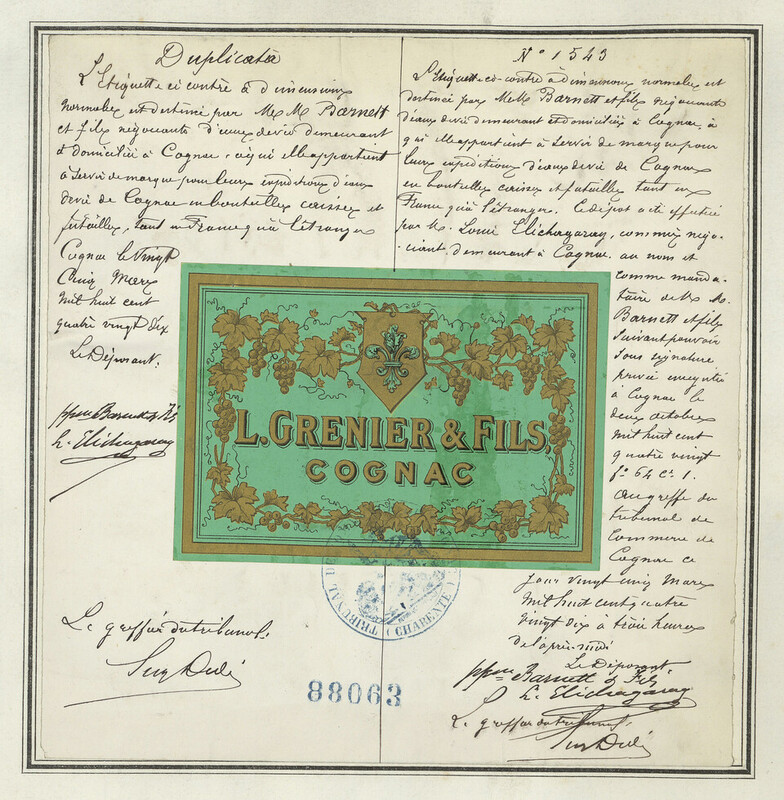 Duplicata
L'Etiquette ci contre à dimensions
normales est destiné par MM. Barnett
et fils négociants d'eaux devie demeurant
et domiciliés à Cognac, à qui elle appartient
à servir de marque pour leurs expéditions d'eaux
devie de Cognac en bouteilles caisses et
futailles, tant en France qu'à l'étranger
Cognac le vingt
Cinq Mars
mil huit cent
quatre vingt dix
Le Déposant.
ppon Barnett & Fils
L. Elichagaray
Le greffier du tribunal.
N° 1543
L'Etiquette ci-contre à dimensions normales est
destinée par MM. Barnett et fils négociants
d'eaux devie demeurant et domiciliés à Cognac, à
qui elle appartient à servir de marque pour
leurs expéditions d'eaux devie de Cognac
en bouteilles caisses et futailles tant en
France qu'à l'étranger. Ce dépot a été effectué
par M. Louis Elichagaray, commis négo-
-ciant, demeurant à Cognac au nom et
comme manda-
taire de M. M.
Barnett et fils
suivant pouvoir
sous signature
privée enregistré
à Cognac le
deux octobre
mil huit cent
quatre vingt
f° 64 C. 1.
au greffe du
tribunal de
Commerce de
Cognac ce
jour vingt cinq Mars
mil huit cent quatre
vingt dix à trois heures
de l'après-midi
Le Déposant
ppon Barnett & Fils
L. Elichagaray
Le greffier du tribunal.
L. GRENIER & FILS,
COGNAC
TRIBUNAL D
(CHARENTE)
88063